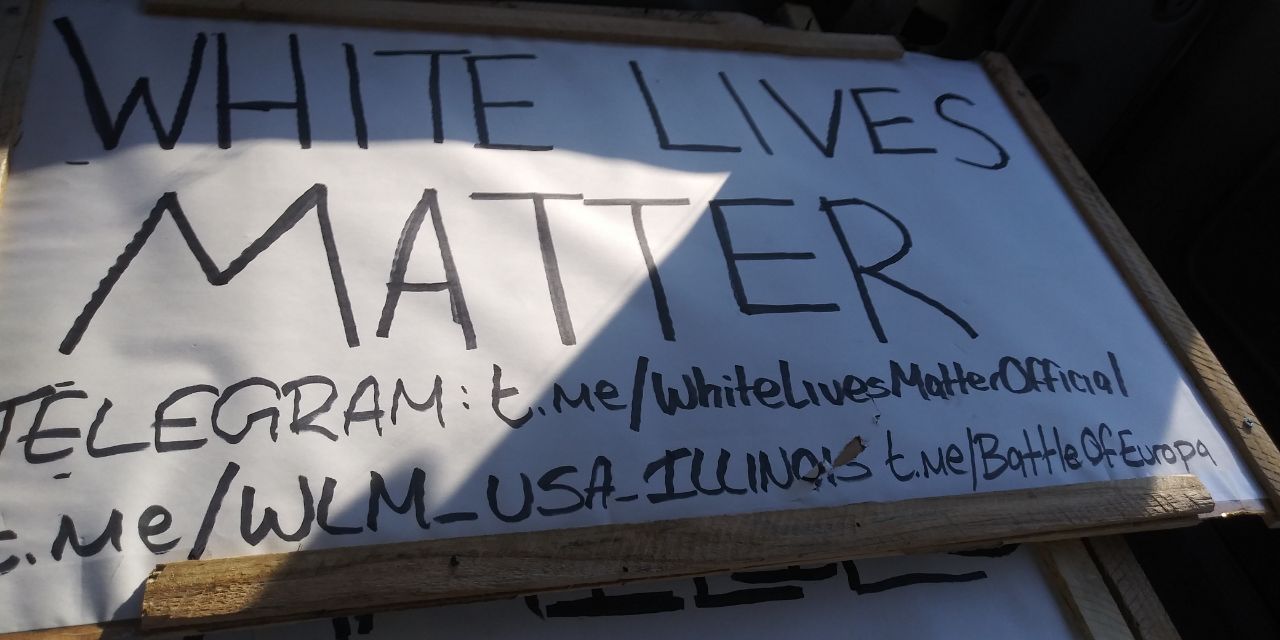 WHITE LIVES
MATTER
TELEGRAM: t.me/WhiteLivesMatterOfficial
t.me/WLM_USA_ILLINOIS t.me/BattleOfEuropa